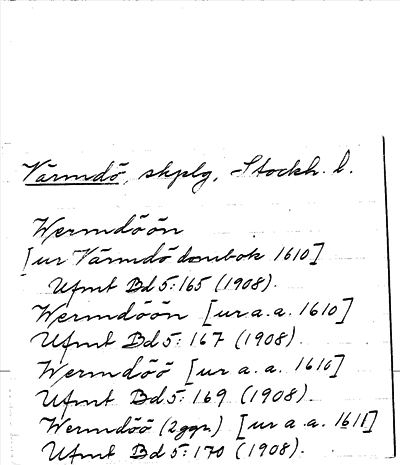 Värmdö, skplg, Stockh. l.
Wermdöön
[ur Värmdö dombok 1610]
Ufmt Bd 5: 165 (1908).
Wermdöön [ur a.a. 1610]
Ufmt Bd 5: 167 (1908).
Wermdöö [ur a.a. 1610]
Ufmt Bd 5: 169 (1908).
Wermdöö (2ggr) [ur a.a. 1611]
Ufmt Bd 5: 170 (1908).